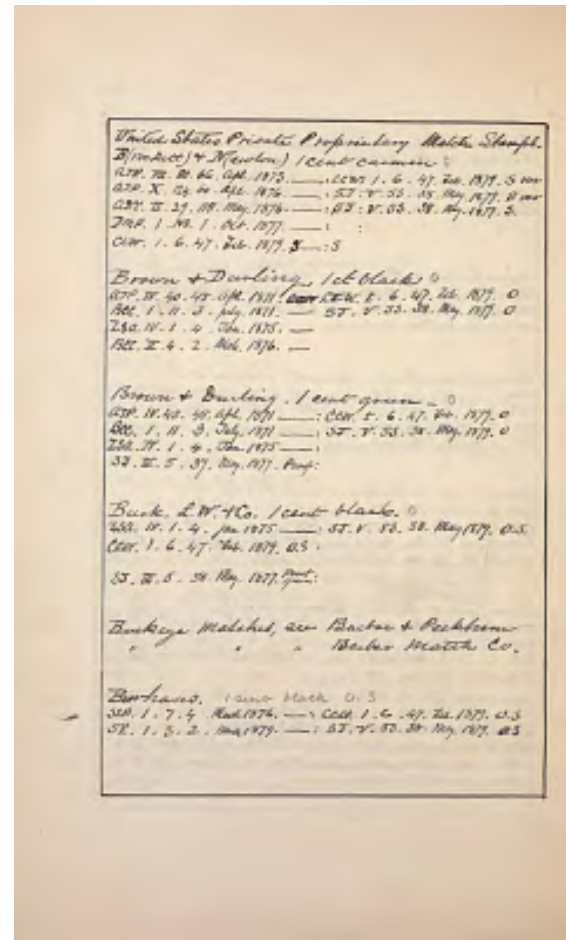 United States Private Proprietary Match Stamps.
B(rockett) & N(ewton) 1 cent carmine
ATP. 60. 66. Apl. 1873. — : CCW. 1. 6. 47. Feb. 1879. S
ATP. X. 124. 40. Apl. 1876 — : ST. V. 53. 38. May. 1879.
39. 118. May. 1876. — : ST. V. 53. 38. May. 1879. S.
1. No. 1. Oct. 1877. — :
CCW. 1. 6. 47. Feb. 1879. — : S
Brown & Durling, 1 ct black.
ATP. IV. 40. 45. Apl. 1871. CCW. 1. 6. 47. Feb. 1879. O
1. 11. 3. July. 1871. — ST. V. 53. 38. May. 1879. O
IV. 1. 4. Jan. 1875. —
II. 4. 2. 1876. —
Brown & Durling. 1 cent green.
ATP. IV. 40. 45. Apl. 1871 — : CCW. 1. 6. 47. Feb. 1879. O
1. 11. 3. July. 1871 — : ST. V. 53. 38. May. 1879. O
IV. 1. 4. Jan. 1875 — :
5. 37. May. 1877. Proof:
Buck, L. W. & Co. 1 cent black.
IV. 1. 4. Jan 1875 — : ST. V. 53. 38. May 1879. O.S
CCW. 1. 6. 47. Feb. 1879. O.S
ST. 5. 38. May. 1877. Proof:
Buckeye Matches, see Barber & Peckham
" " " Barber Match Co.
1 cent black O.S
1. 7. 4. 1876. — : CCW. 1. 6. 47. Feb. 1879. O.S
1. 3. 2. 1879. — : ST. V. 53. 38. May. 1879. O.S